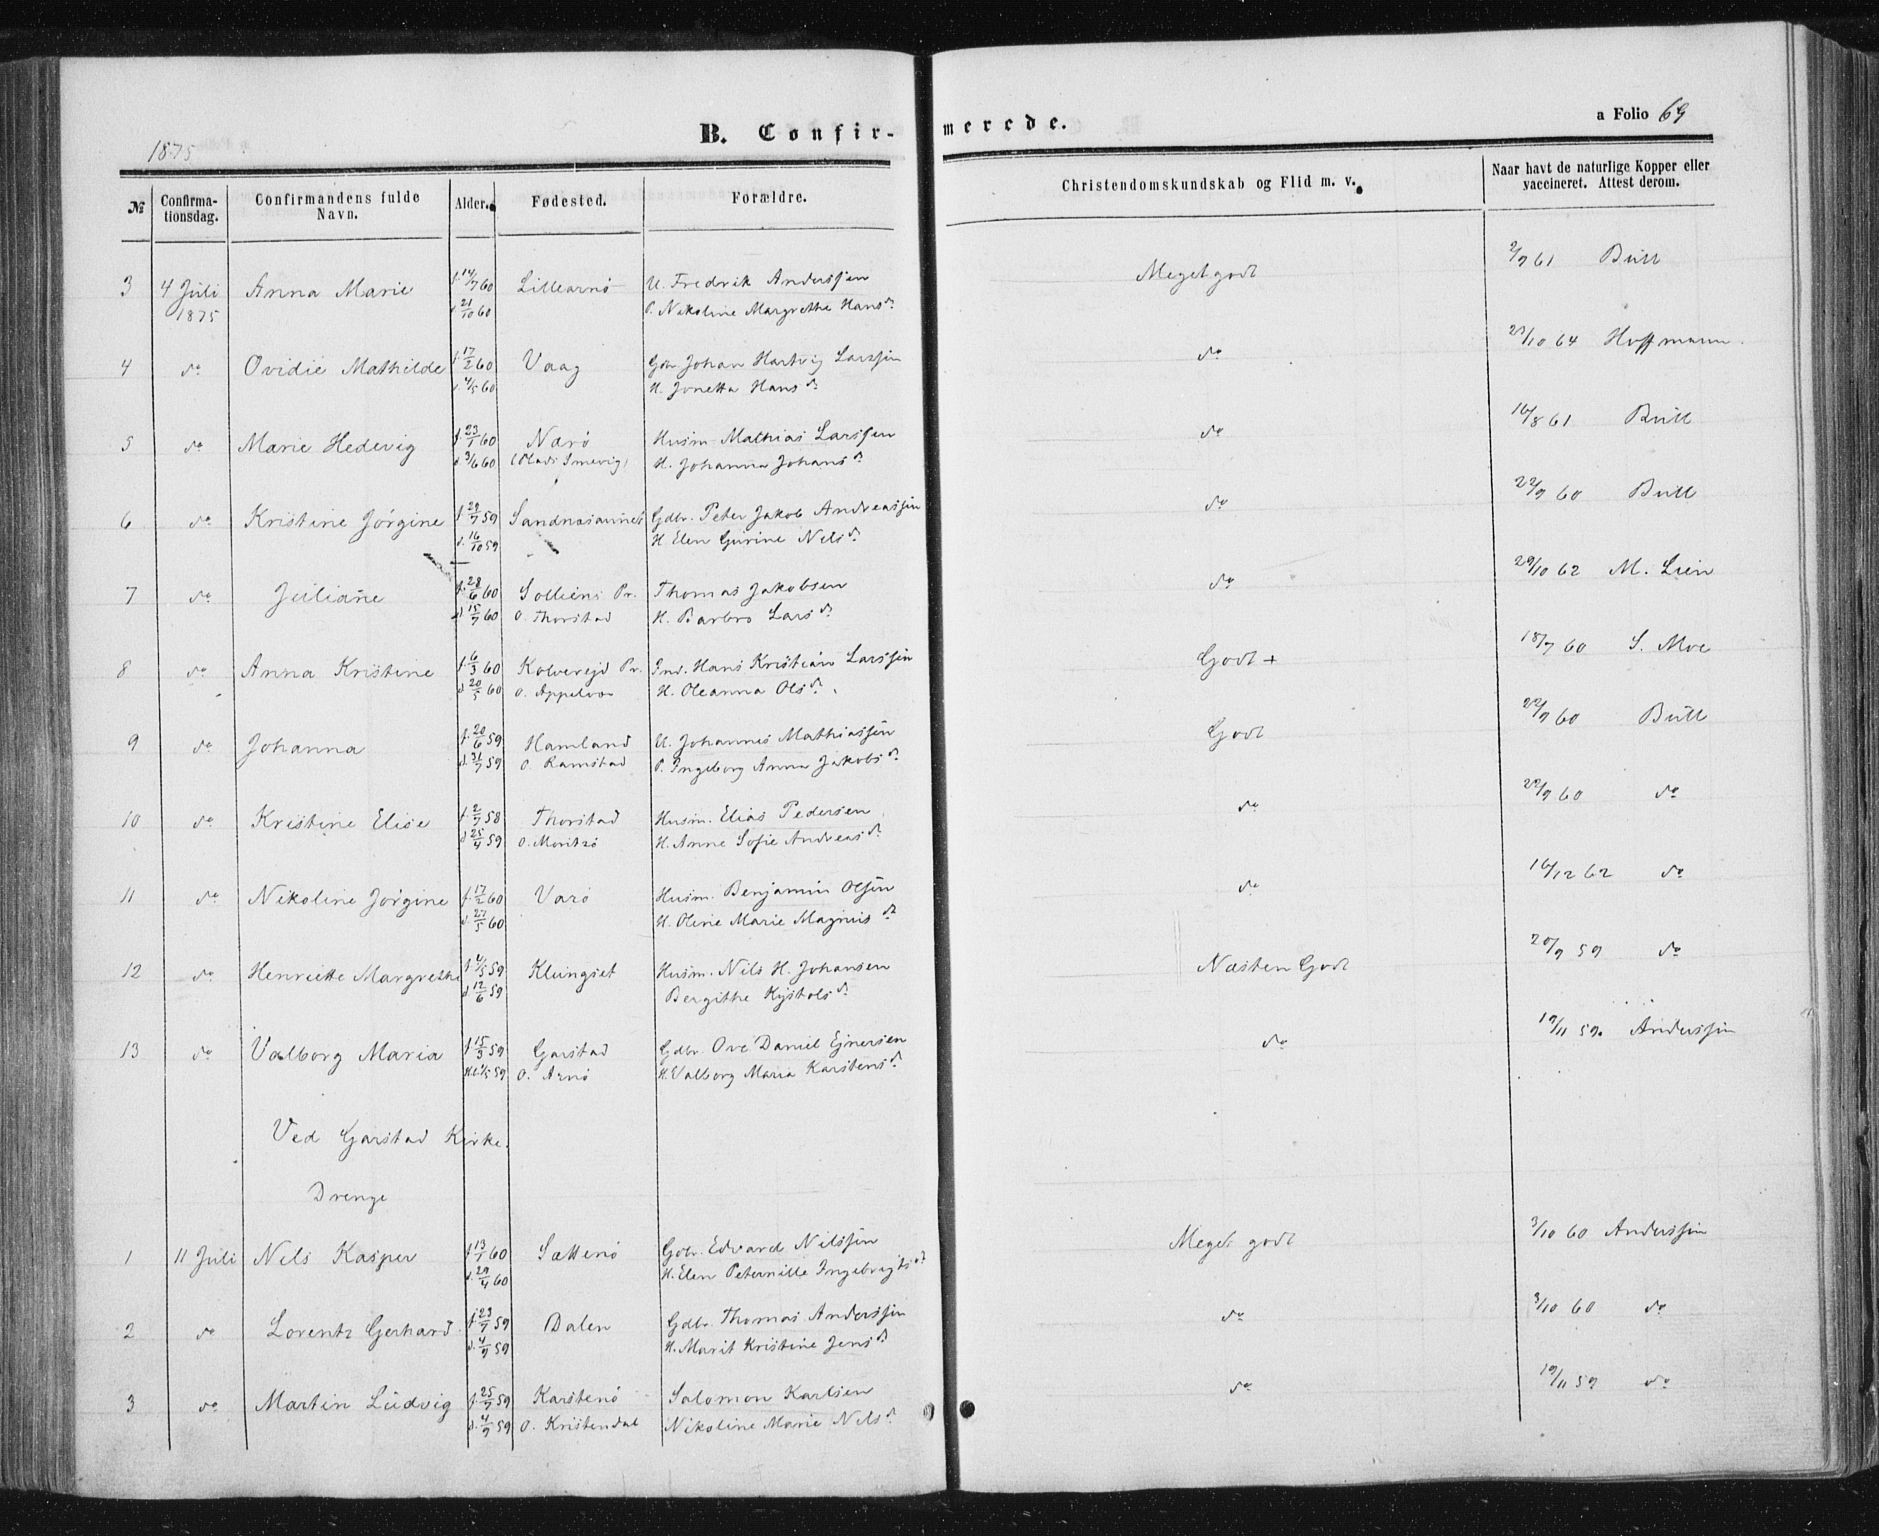 1875
B. Confir-
merede.
a Folio 69
№ Confirma-tionsdag. Confirmandens fulde Navn. Alder. Fødested. Forældre. Christendomskundskab og Flid m. v. Naar havt de naturlige Kopper eller vaccineret. Attest derom.
3 4 Juli Anna Marie f. 14/7 60 Lillearnø U. Fredrik Anderssen Meget godt 2/9 61 Bull
1875 d. 21/10 60 P. Nikoline Margrethe Hansd.
4 do Ovidie Mathilde f. 17/2 60 Vaag Gdbr Johan Hartvig Larssen do 23/10 64 Hoffmann.
d. 4/5 60 H. Jonetta Hansd.
5 do Marie Hedevig f. 23/1 60 Nærø Husm. Mathias Larssen do 16/8 61 Bull
d. 3/6 60 H. Johanna Johansd.
6 do Kristine Jørgine f. 29/7 59 Gdbr. Peter Jakob Andreassen do 22/9 60 Bull
d. 16/10 59 H. Elen Gurine Nelsd.
7 do Juliane f. 28/6 60 Solliens Pr. Thomas Jakobsen do 29/10 62 M. Lien
d. 15/7 60 O. Thorstad H. Barbro Larsd.
8 do Anna Kristine f. 6/3 60 Kolvereid Pr. Ind. Hans Kristian Larssen Godt + 18/7 60 S. Moe
d. 20/5 60 O. Appelvær H. Oleanna Olsd.
9 do Johanna f. 20/6 59 Hamland U. Johannes Mathiassen Godt 22/9 60 Bull
d. 31/7 59 O. Ramstad P. Ingeborg Anna Jakobsd.
10 do Kristine Elise f. 2/7 58 Thorstad Husm. Elias Pedersen do 22/9 60 do
d. 25/4 59 O. Moritzø H. Anne Sofie Andreasd.
11 do Nikoline Jørgine f. 17/2 60 Varø Husm. Benjamin Olsen do 16/12 62 do
d. 27/5 60 H. Oline Marie Magnusd.
12 do Henriette Margrethe f. 4/5 59 Klungset Husm. Nils H. Johansen Næsten Godt 20/9 59 do
d. 12/6 59 Bergithe Kjstolsd.
13 do Valborg Maria f. 15/3 59 Garstad Gdbr. Ove Daniel Ejnersen do 19/11 59. Anderssen
O. Arnø H. Valborg Maria Karstensd.
Ved Garstad Kirke.
Drenge
1 11 Juli Nels Kasper f. 13/1 60 Sætterø Gdbr. Edvard Nilssen Meget godt 3/10 60 Anderssen
d. 29/4 60 H. Elen Peternille Ingebrigtsd.
2 do Lorentz Gerhard f. 23/7 59 Dalen Gdbr. Thomas Anderssen do 3/10 60 do
d. 4/9 59 H. Marit Kristine Jensd.
3 do Martin Ludvig f. 25/7 59 Karstenø Salomon Karlsen do 19/11 59 do
d. 4/9 59 O. Kristendal Nikoline Marie Nelsd.